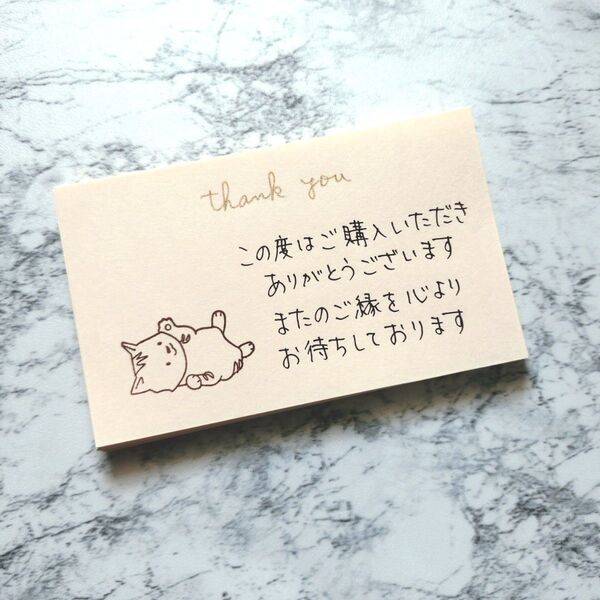 thank you
この度はご購入いただき
ありがとうございます
またのご縁を心より
お待ちしております